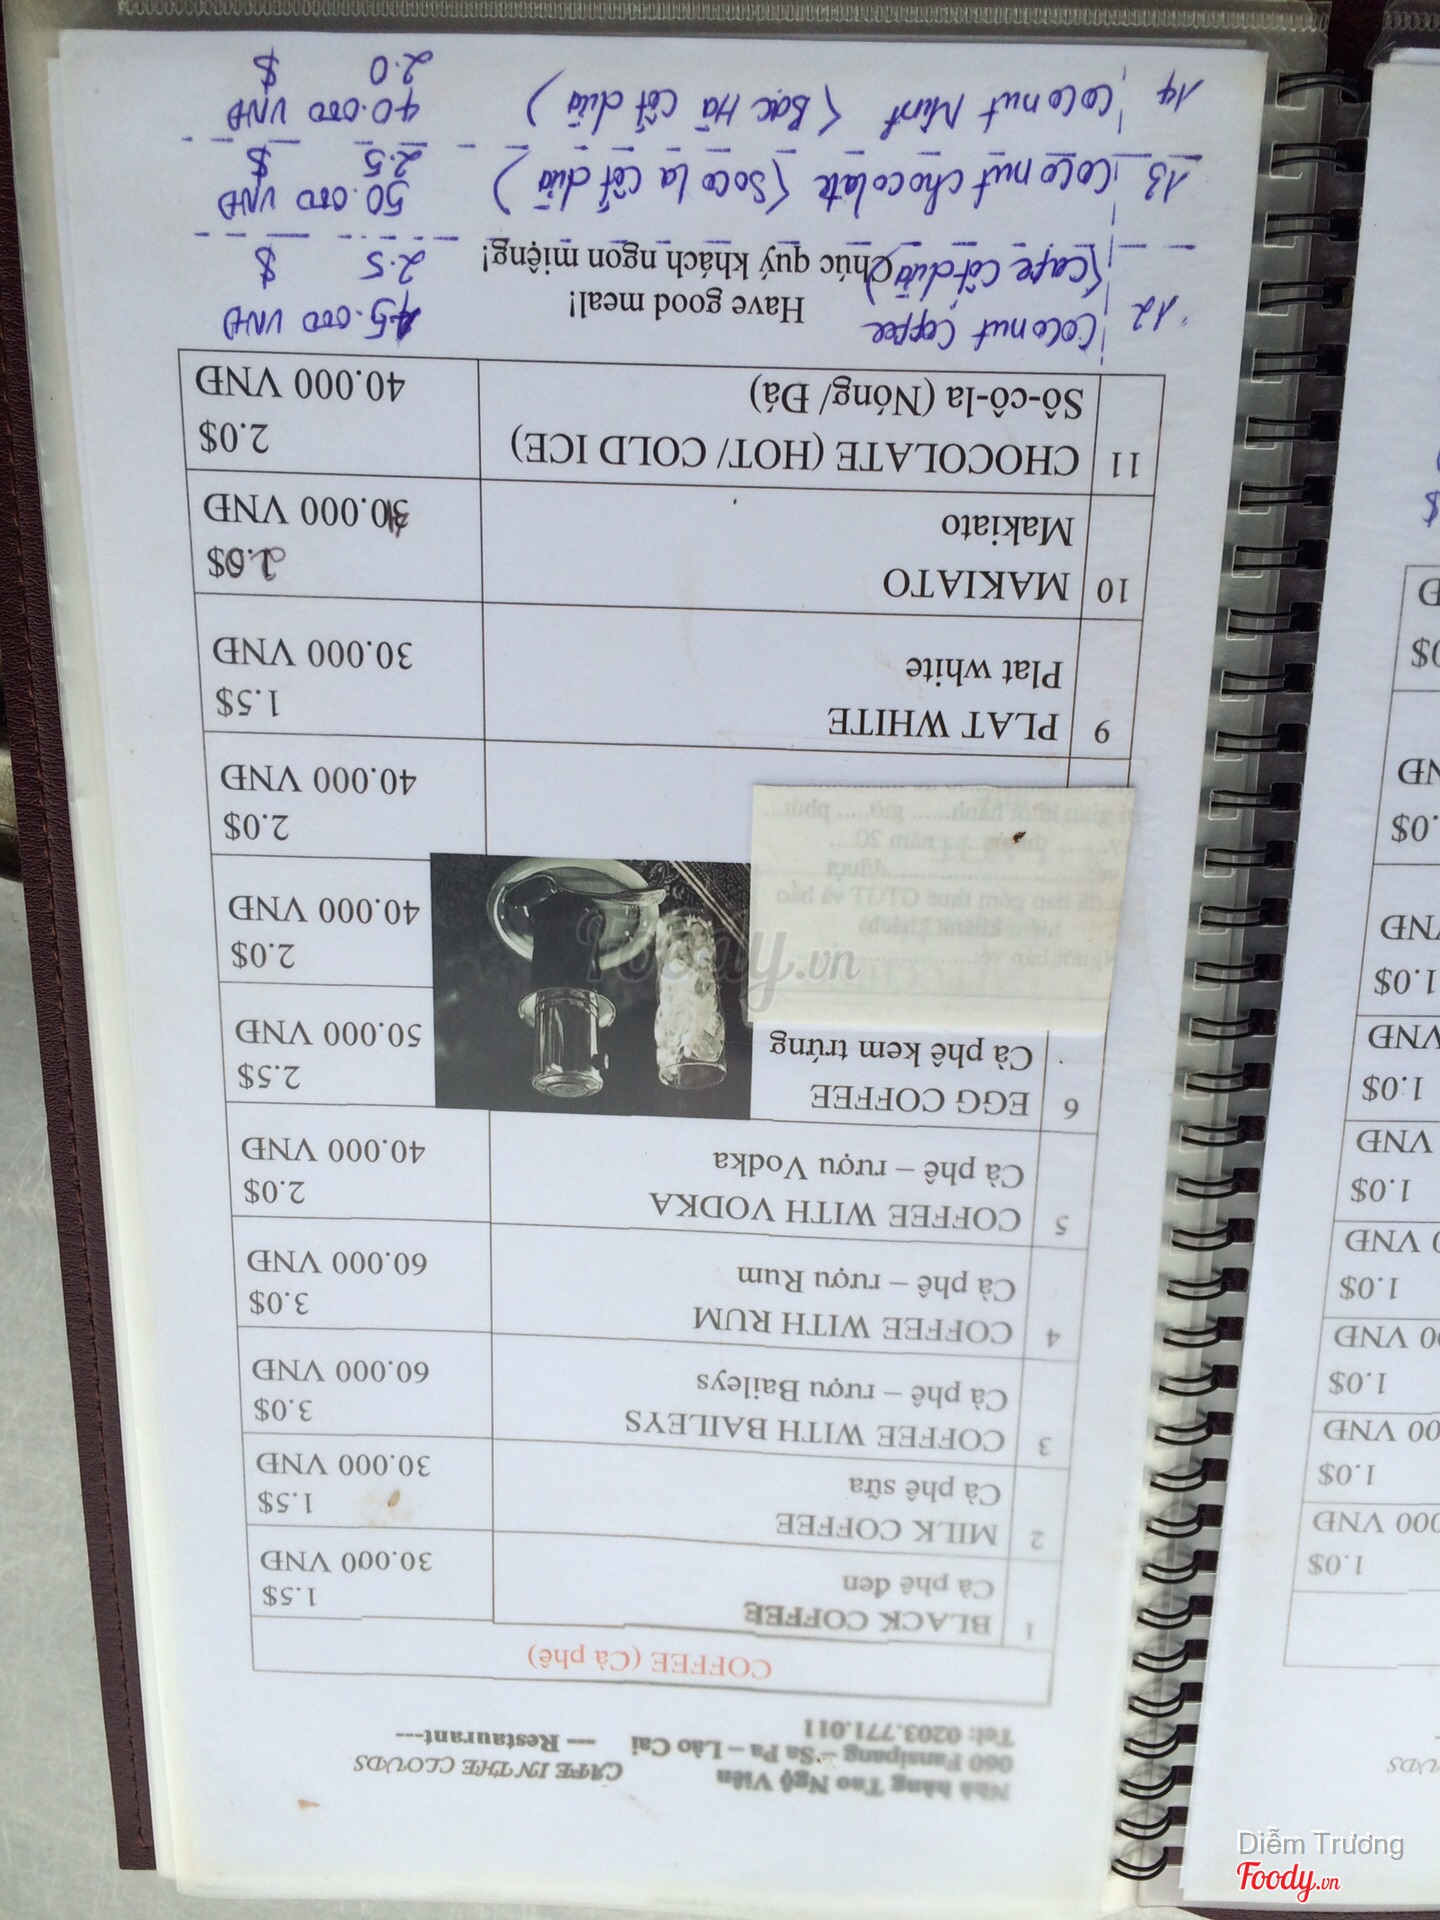 Nhà hàng Tao Ngộ Viên CAFE IN THE CLOUDS
060 Fansipang – Sa Pa – Lào Cai --- Restaurant---
Tel: 0203.771.011
COFFEE (Cà phê)
1 BLACK COFFEE 1.5$
Cà phê đen 30.000 VNĐ
2 MILK COFFEE 1.5$
Cà phê sữa 30.000 VNĐ
3 COFFEE WITH BAILEYS 3.0$
Cà phê – rượu Baileys 60.000 VNĐ
4 COFFEE WITH RUM 3.0$
Cà phê – rượu Rum 60.000 VNĐ
5 COFFEE WITH VODKA 2.0$
Cà phê – rượu Vodka 40.000 VNĐ
6 EGG COFFEE 2.5$
Cà phê kem trứng 50.000 VNĐ
2.0$
40.000 VNĐ
2.0$
40.000 VNĐ
9 PLAT WHITE 1.5$
Plat white 30.000 VNĐ
10 MAKIATO 2.0$
Makiato 30.000 VNĐ
11 CHOCOLATE (HOT/ COLD ICE) 2.0$
Sô-cô-la (Nóng/ Đá) 40.000 VNĐ
Have good meal!
Chúc quý khách ngon miệng!
12 Coconut Coffee 45.000 VNĐ
(Cafe Cốt dừa) 2.5 $
13 Coconut chocolate (Soco la cốt dừa) 50.000 VNĐ
2.5 $
14 Coconut Mint (Bạc Hà cốt dừa) 40.000 VNĐ
2.0 $
Foody.vn
Diễm Trương
Foody.vn